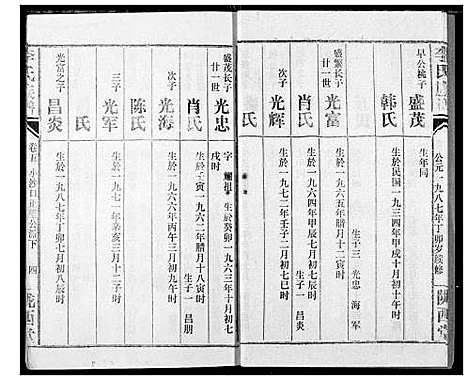 公元一九八七年丁卯岁续修
陇西堂
早公桃子
盛茂
生年同
韩氏
生於民国一九三四年甲戌十月初八时
生子三 光忠 海 军
盛繁长子
廿一世
光富
生於一九六五年腊月十二寅时
肖氏
生於一九六四年甲辰七月初八丑时
生子一 昌炎
次子
光辉
生於一九七二年壬子二月初七巳时
氏
盛茂长子
廿一世
光忠
字 生於癸卯一九六三年十月初七
戌时
肖氏
生於壬寅一九六二年腊月十八寅时
生子一 昌朋
次子
光海
生於一九六六年丙午三月初九午时
陈氏
三子
光军
生於一九七一年亥三月十二子时
氏
光富之子
昌炎
生於一九八七年丁卯七月初九辰时
李氏族谱
卷五
四
陇西堂